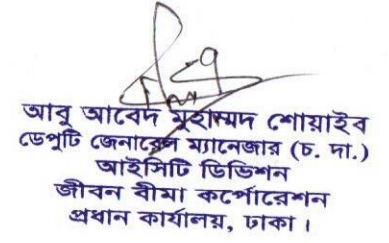 আবু আবেদ মুহাম্মদ শোয়াইব
ডেপুটি জেনারেল ম্যানেজার (চ. দা.)
আইসিটি ডিভিশন
জীবন বীমা কর্পোরেশন
প্রধান কার্যালয়, ঢাকা।